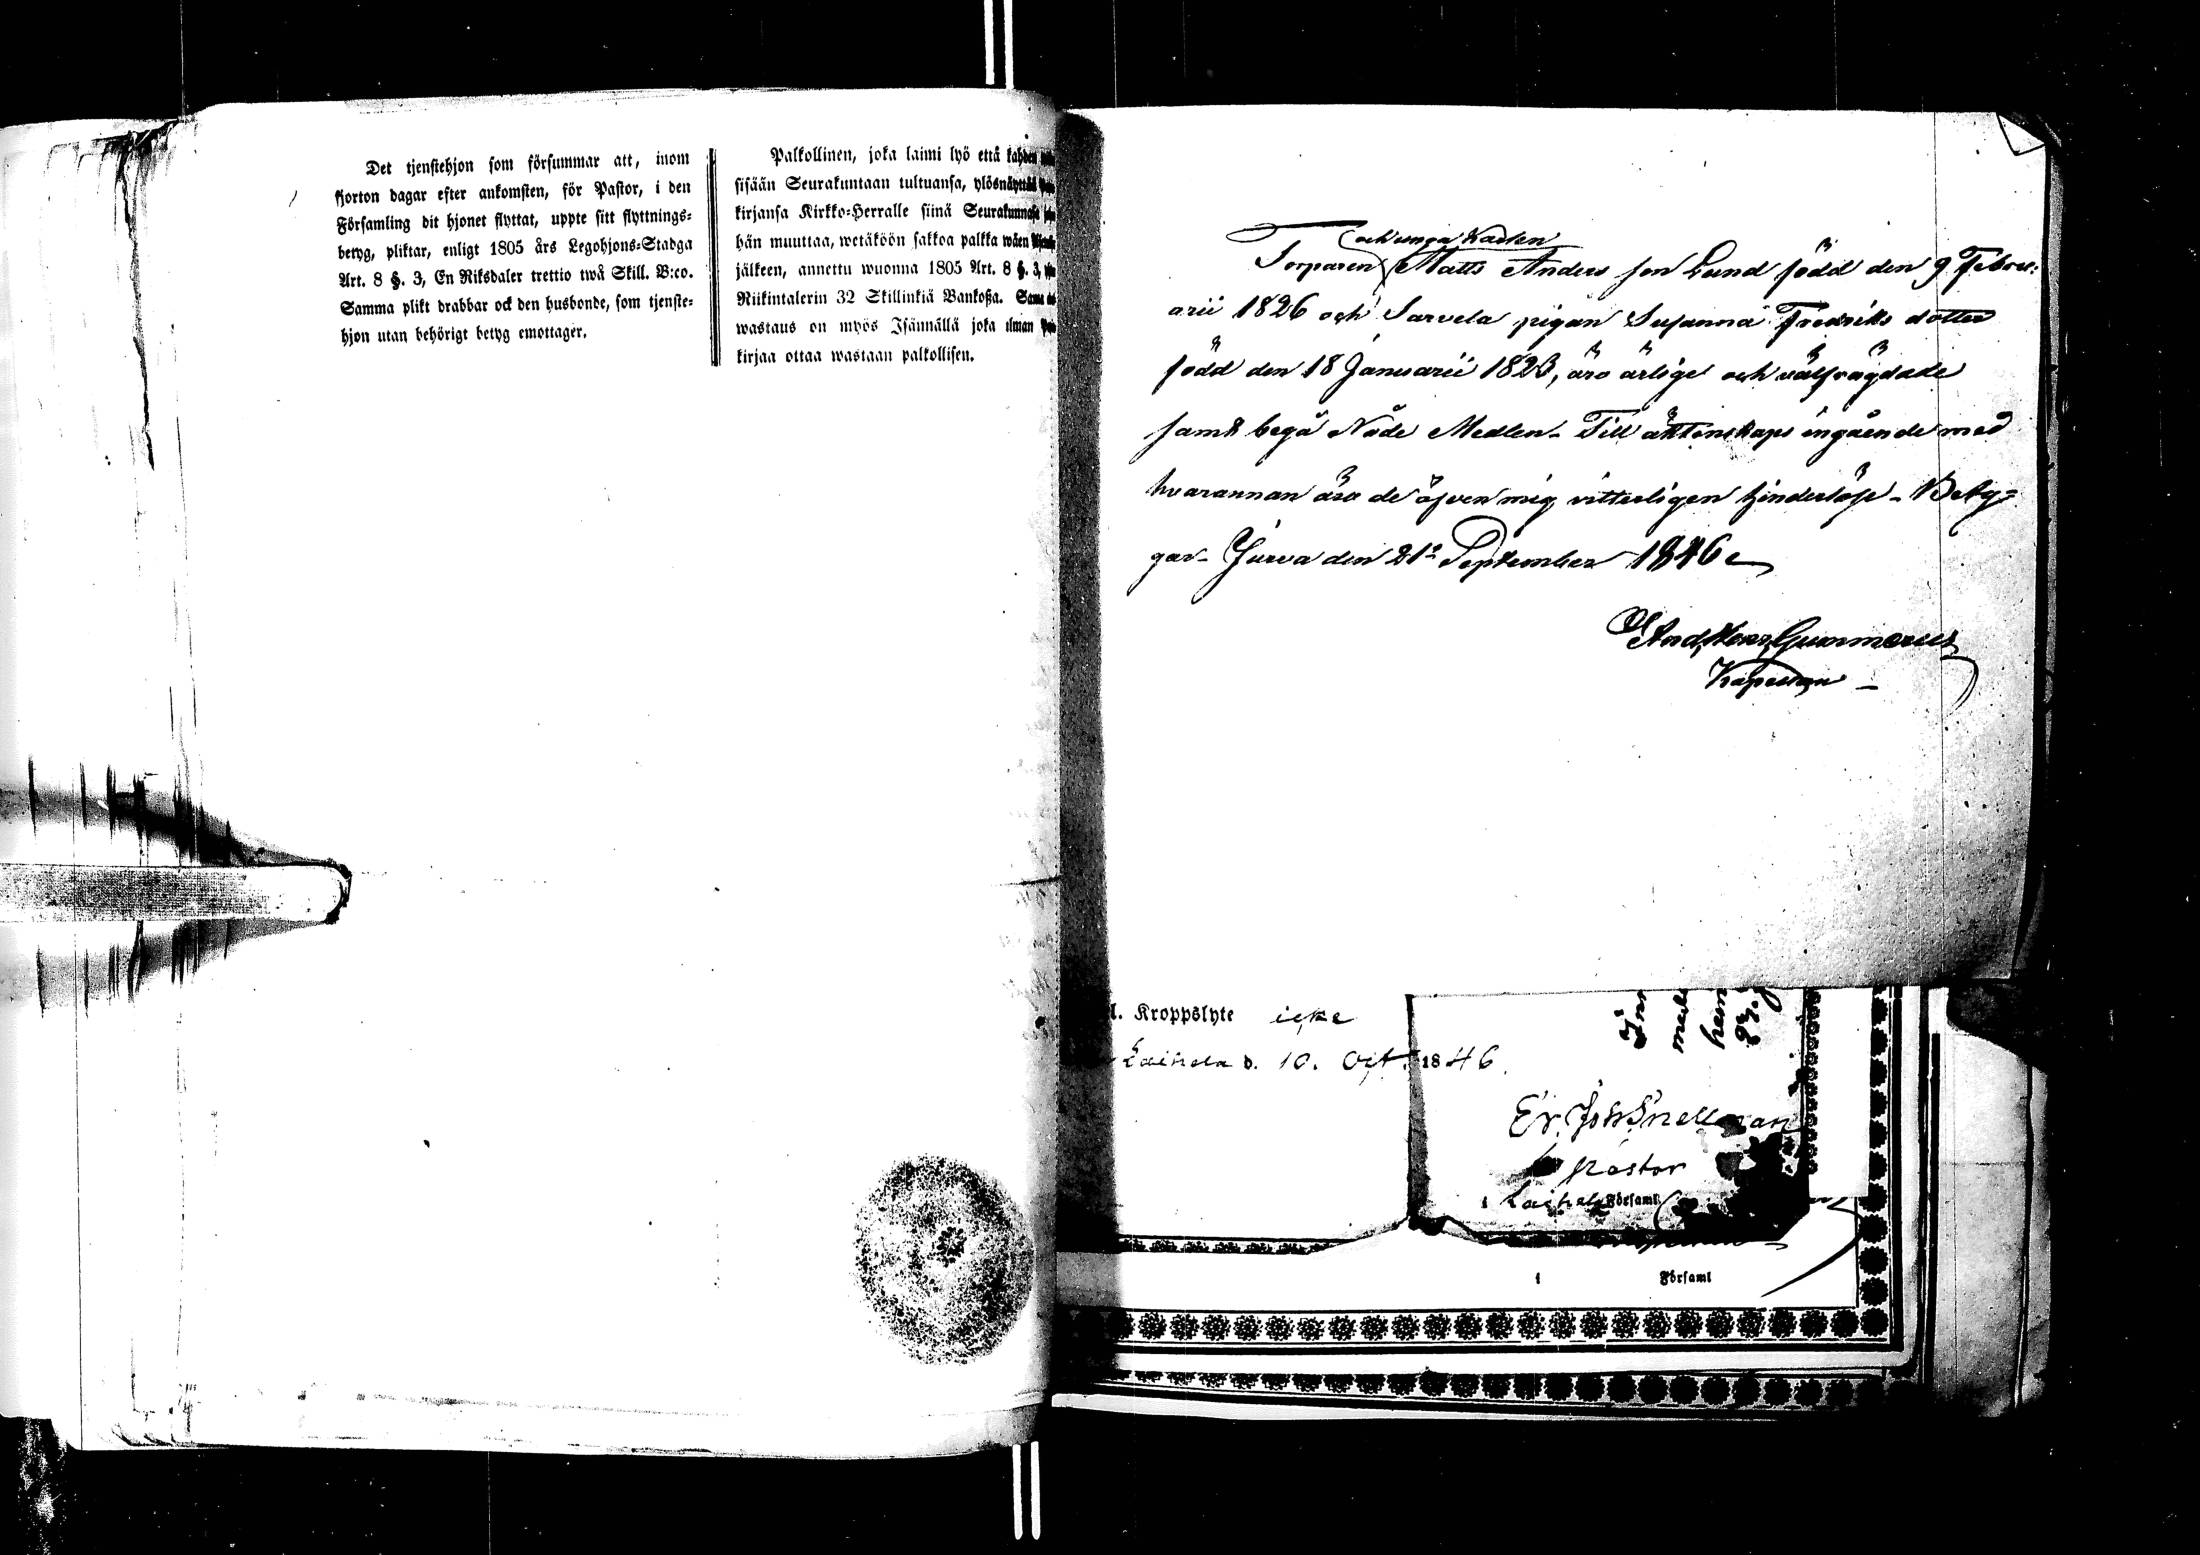 Det tjenstehjon som försummar att, inom
fjorton dagar efter ankomsten, för Pastor, i den
Församling dit hjonet flyttat, uppte sitt flyttnings=
betyg, pliktar, enligt 1805 års Legohjons=Stadga
Art. 8 §. 3, En Riksdaler trettio twå Skill. B:co.
Samma plikt drabbar ock den husbonde, som tjenste=
hjon utan behörigt betyg emottager.
Palkollinen, joka laimi lyö että kahden
sisään Seurakuntaan tultuansa, ylösnäyttää
kirjansa Kirkko=Herralle siinä Seurakunnasa
hän muuttaa, wetäköön sakkoa palkka wäen
jälkeen, annettu wuonna 1805 Art. 8 §. 3,
Riikintalerin 32 Skillinkiä Bankoßa. Sama
wastaus on myös Isännällä joka ilman
kirjaa ottaa wastaan palkollisen.
och unga Karlen
Torparen Matts Anders son Lund född den 9 Febru=
arii 1826 och Sarvela pigan Susanna Fredriks dotter
född den 18 Januarii 1823, äro ärlige och välfrägdade
samt begå Nåde Medlen. Till äktenskaps ingående med
hvarannan äro de äfven mig vitterligen hinderlöse. Bety=
gar. Jurva den 21 September 1846
And. Henr.
Kapellan
l. Kroppslyte icke
Laihela d. 10. Oct. 1846.
Er. Joh Snellman
Pastor
i Laihela Församl.
i Församl